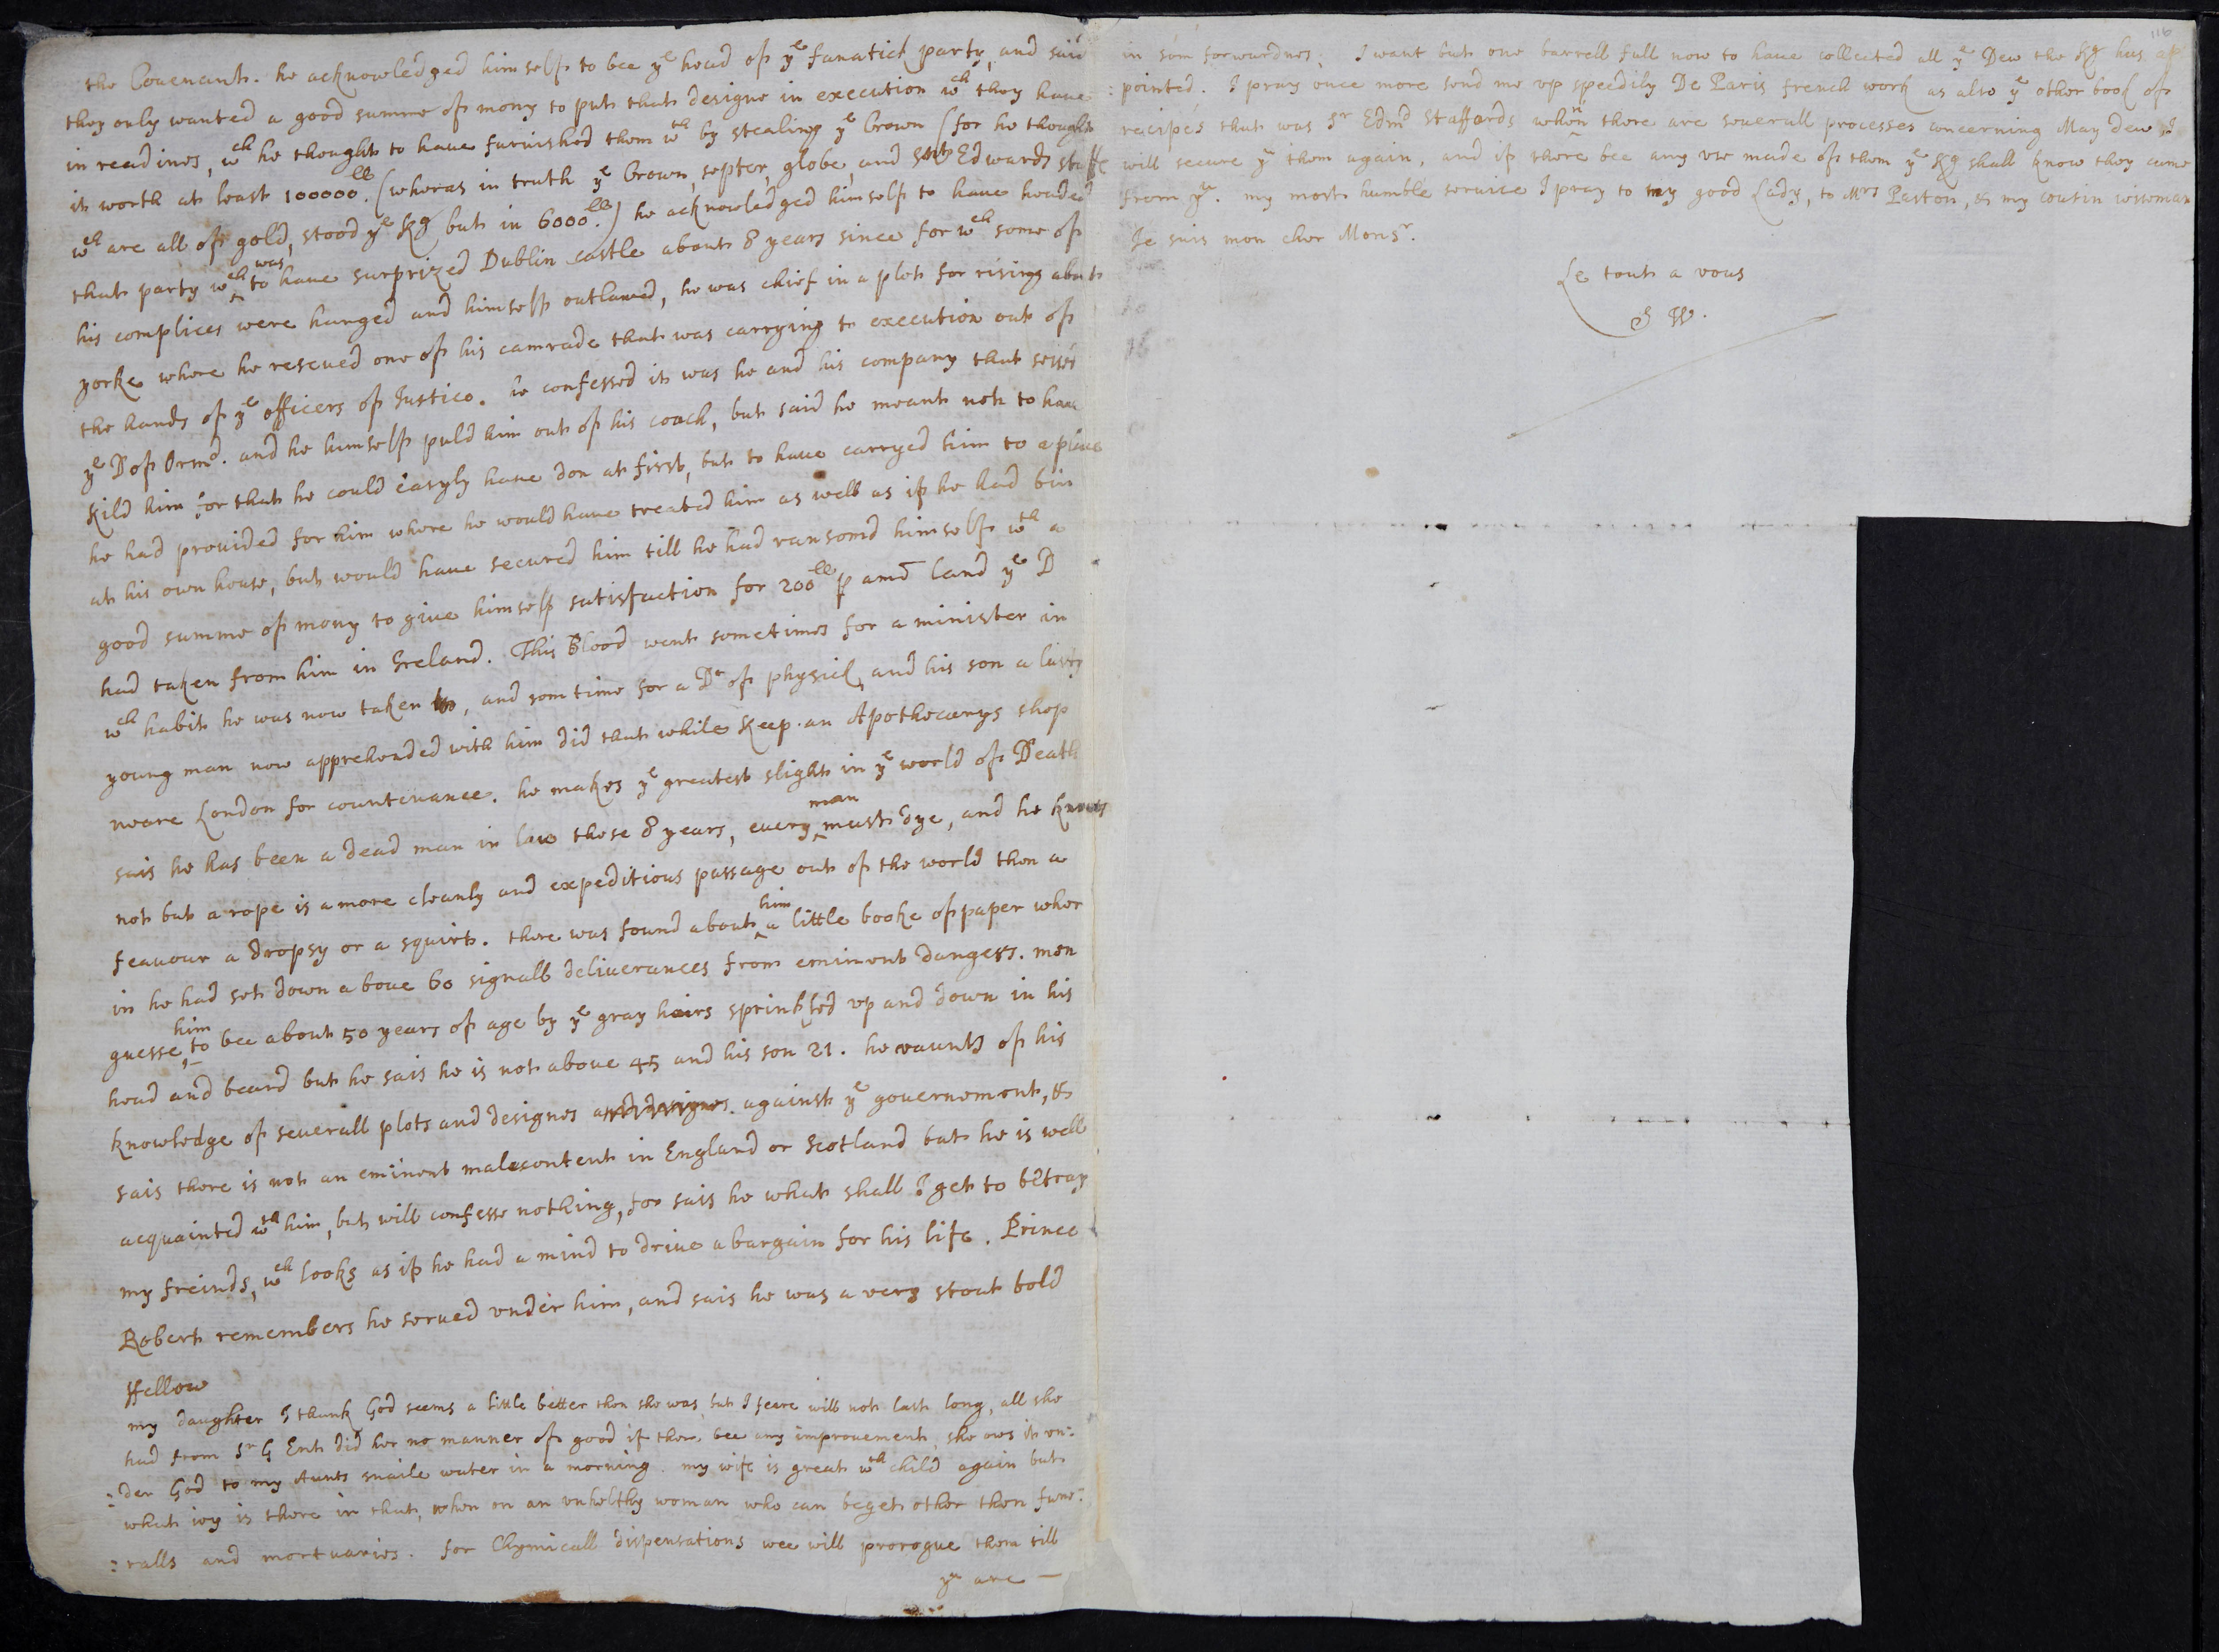 the Couenant. he acknowledged himself to bee yᵉ head of yᵉ fanatick party, and said
they only wanted a good summe of mony to put that designe in execution wᶜʰ they haue
in readines, wᶜʰ he thought to haue furnished them wᵗʰ by stealing yᵉ Crown (for he thought
it worth at least 100000ˡˡ. (wheras in truth yᵉ Crown, septer, globe, and Sᵗ Edwards staffe
wᶜʰ are all of gold, stood yᵉ Kg but in 6000ˡˡ.) he acknowledged himself to haue headed
that party wᶜʰ was to haue surprized Dublin castle about 8 years since for wᶜʰ some of
his complices were hanged and himself outlawed, he was chief in a plot for rising about
yorke where he rescued one of his camrade that was carrying to execution out of
the hands of yᵉ officers of Justice. he confessed it was he and his company that seised
yᵉ D of Ormd. and he himself puld him out of his coach, but said he meant not to haue
kild him for that he could easyly haue don at first, but to haue carryed him to a place
he had prouided for him where he would haue treated him as well as if he had bin
at his own house, but would haue secured him till he had ransomd himself wᵗʰ a
good summe of mony to giue himself satisfaction for 200ˡˡ p annū land yᵉ D
had taken from him in Ireland. This Blood went sometimes for a minister in
wᶜʰ habit he was now taken, and som time for a Dʳ of physick, and his son a lusty
young man now apprehended with him did that while keep an Apothecarys shop
neare London for countenance. he makes yᵉ greatest slight in yᵉ world of Death
sais he has been a dead man in law these 8 years, euery man must dye, and he knows
not but a rope is a more cleanly and expeditious passage out of the world then a
feauour a dropsy or a squirt. there was found about him a little booke of paper wher
in he had set down aboue 60 signall deliuerances from eminent dangers. men
guesse him to bee about 50 years of age by yᵉ gray hairs sprinkled vp and down in his
head and beard but he sais he is not aboue 45 and his son 21. he vaunts of his
knowledge of seuerall plots and designes and designes against yᵉ gouernement, &
sais there is not an eminent malecontent in England or Scotland but he is well
acquainted wᵗʰ him, but will confesse nothing, for sais he what shall I get to betray
my freinds, wᶜʰ looks as if he had a mind to driue a bargain for his life. Prince
Robert remembers he serued vnder him, and sais he was a very stout bold
ffellow
my daughter I thank God seems a little better then she was, but I feare will not last long, all she
had from Sʳ G Ent did her no manner of good if there bee any improuement, she ows it vn:
:der God to my Aunts snaile water in a morning. my wife is great wᵗʰ child again but
what ioy is there in that, when on an vnhelthy woman who can beget other then fune:
:ralls and mortuaries. for Chymicall dispensations wee will prorogue them till
yᵘ are —
116
in som forwardnes; I want but one barrell full now to haue collected all yᵉ Dew the Kg has ap
:pointed. I pray once more send me vp speedily De Paris french work as also yᵉ other book of
recipes that was Sʳ Edmd Staffords wherin there are seuerall processes concerning May dew, I
will secure yᵘ them again, and if there bee any vse made of them yᵉ Kg shall know they came
from yᵘ. my most humble seruice I pray to my good Lady, to Mʳˢ Paston, & my cousin wiseman
Je suis mon cher Monsʳ.
Le tout a vous
J W.